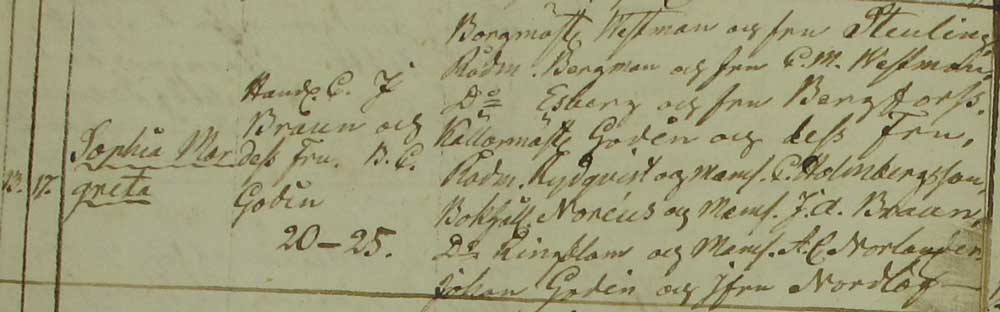 13. 17. Sophia Mar
greta
Handl. C. J
Braun och
dess Fru. B. C.
Godin
20-25.
Borgmäst. Westman och fru Steuling
Rådm. Bergman och fru C. M. Westman,
Do Esberg och fru Bergfors,
Källarmäst. Godén och dess Fru,
Rådm. Rydqvist och Mams. C. Holmbergsson,
Bokhåll. Noréus och Mams. J. A. Braun,
Do Ringblom och Mams. A. C. Norlander
Johan Godén och Jfru Nordlöf